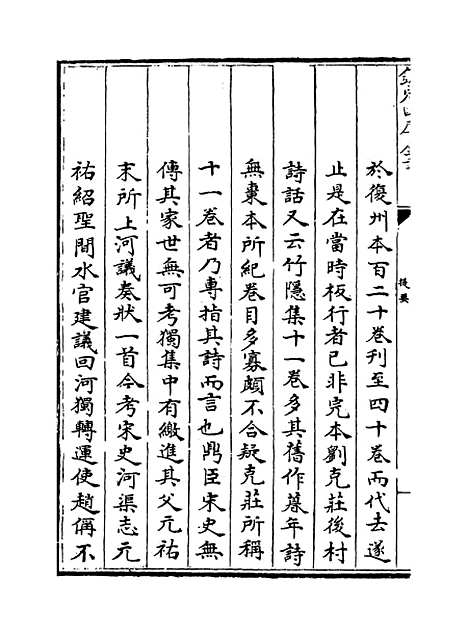 欽定四庫全書
提要
於復州本百二十卷刊至四十卷而代去遂
止是在當時板行者已非完本劉克莊後村
詩話又云竹隱集十一卷多其舊作暮年詩
無棗本所紀卷目多寡頗不合疑克莊所稱
十一卷者乃專指其詩而言也鼎臣宋史無
傳其家世無可考獨集中有繳進其父元祐
末所上河議奏狀一首今考宋史河渠志元
祐紹聖間水官建議回河獨轉運使趙偁不